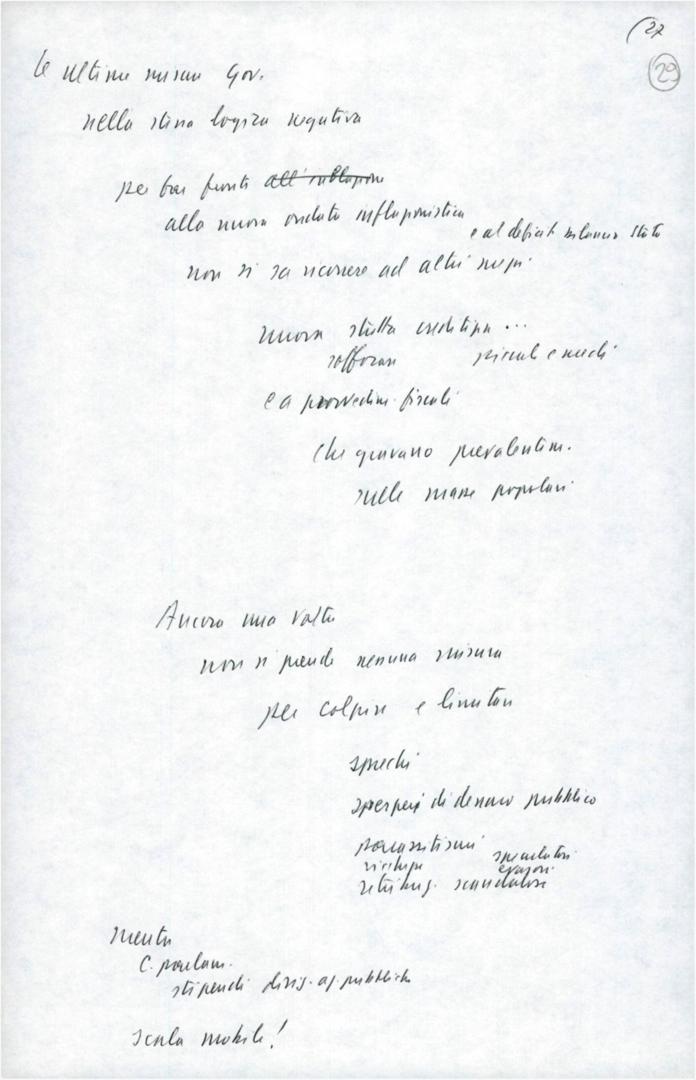 (27
29
Le ultime misure Gov.
nella stessa logica negativa
per far fronte all'inflazione
alla nuova ondata inflazionistica
e al deficit bilancio Stato
non si sa ricorrere ad altri mezzi
nuova stretta creditizia ...
soffocare piccole e medi
e a provvedim. fiscali
che gravano prevalentem.
sulle masse popolari
Ancora una volta
non si prende nessuna misura
per colpire e limitare
sprechi
sperperi di denaro pubblico
parassitismi
speculatori
evasori
retribuz. scandalose
mentre
C. parlam.
stipendi dirig. az. pubbliche
scala mobile!